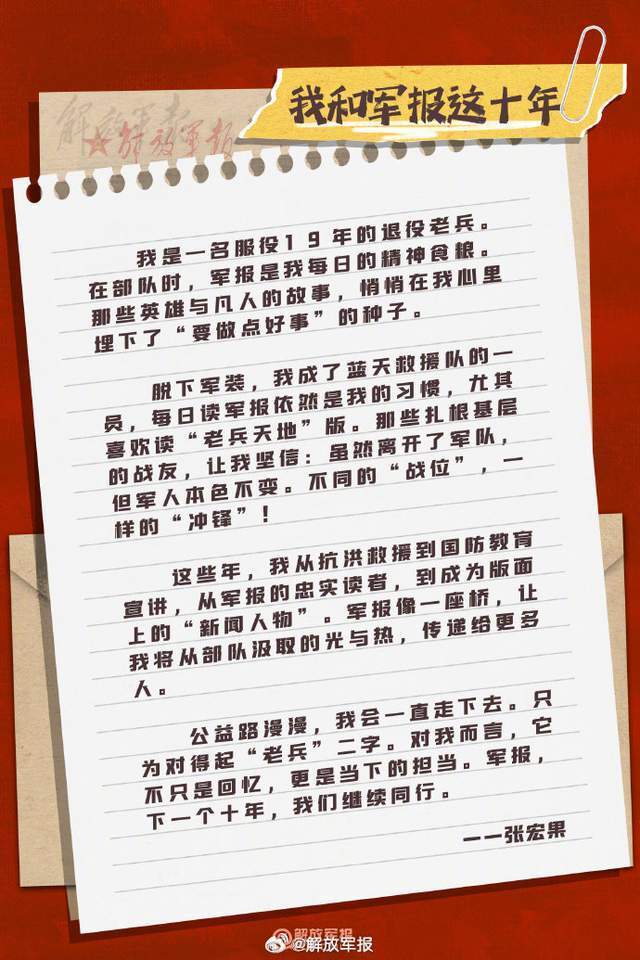 我和军报这十年
解放军报
解放军报
我是一名服役19年的退役老兵。
在部队时，军报是我每日的精神食粮。
那些英雄与凡人的故事，悄悄在我心里
埋下了“要做点好事”的种子。
脱下军装，我成了蓝天救援队的一
员，每日读军报依然是我的习惯，尤其
喜欢读“老兵天地”版。那些扎根基层
的战友，让我坚信：虽然离开了军队，
但军人本色不变。不同的“战位”，一
样的“冲锋”！
这些年，我从抗洪救援到国防教育
宣讲，从军报的忠实读者，到成为版面
上的“新闻人物”。军报像一座桥，让
我将从部队汲取的光与热，传递给更多
人。
公益路漫漫，我会一直走下去。只
为对得起“老兵”二字。对我而言，它
不只是回忆，更是当下的担当。军报，
下一个十年，我们继续同行。
——张宏果
解放军报
@解放军报